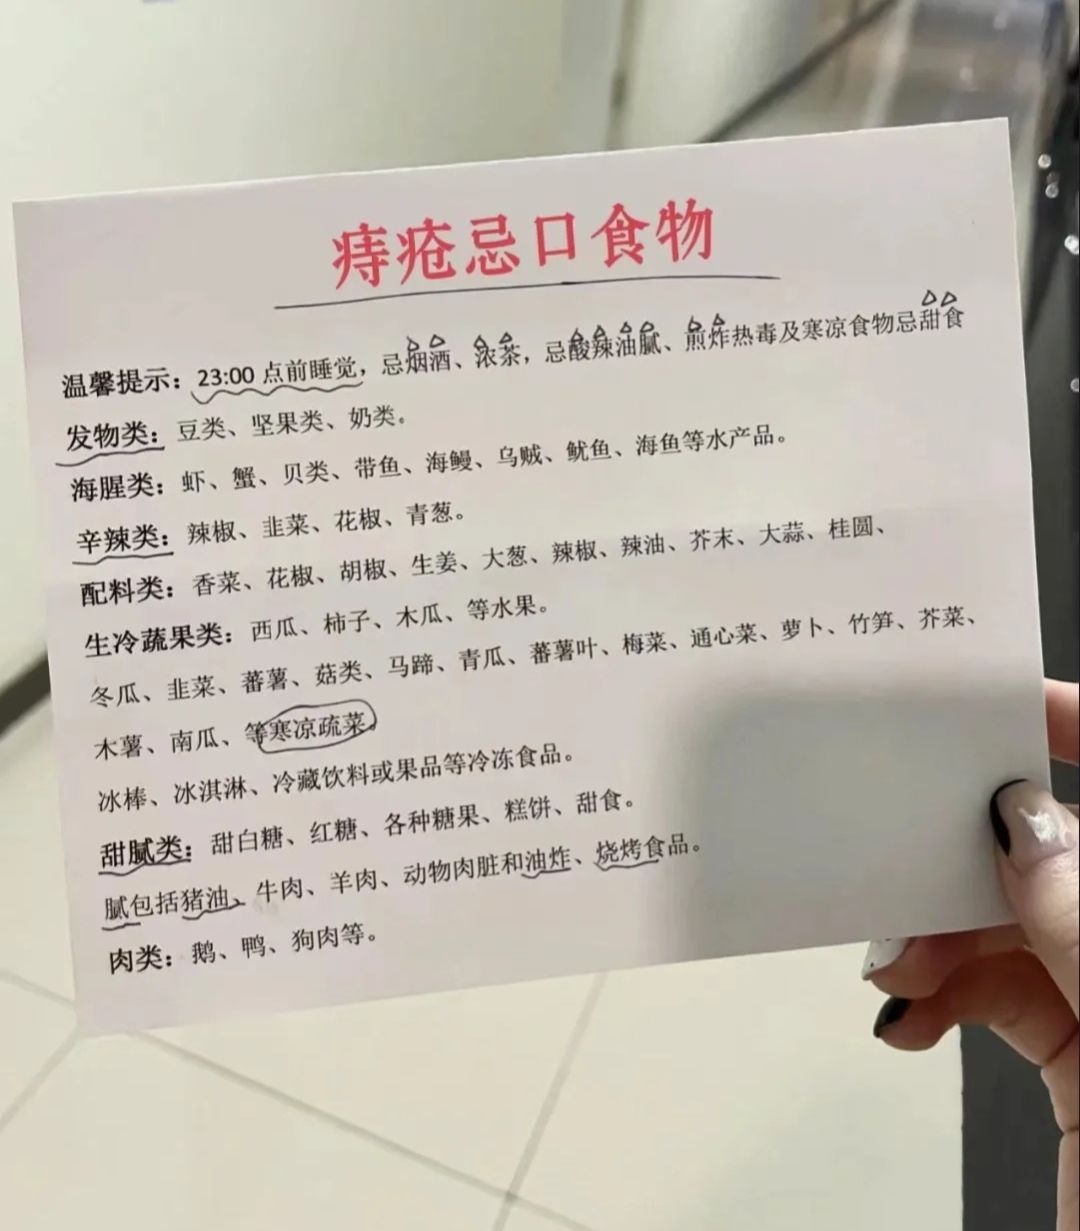 痔疮忌口食物
温馨提示：23:00 点前睡觉，忌烟酒、浓茶，忌酸辣油腻、煎炸热毒及寒凉食物忌甜食
发物类：豆类、坚果类、奶类。
海腥类：虾、蟹、贝类、带鱼、海鳗、乌贼、鱿鱼、海鱼等水产品。
辛辣类：辣椒、韭菜、花椒、青葱。
配料类：香菜、花椒、胡椒、生姜、大葱、辣椒、辣油、芥末、大蒜、桂圆、
生冷蔬果类：西瓜、柿子、木瓜、等水果。
冬瓜、韭菜、蕃薯、菇类、马蹄、青瓜、蕃薯叶、梅菜、通心菜、萝卜、竹笋、芥菜、
木薯、南瓜、等寒凉疏菜。
冰棒、冰淇淋、冷藏饮料或果品等冷冻食品。
甜腻类：甜白糖、红糖、各种糖果、糕饼、甜食。
腻包括猪油、牛肉、羊肉、动物肉脏和油炸、烧烤食品。
肉类：鹅、鸭、狗肉等。